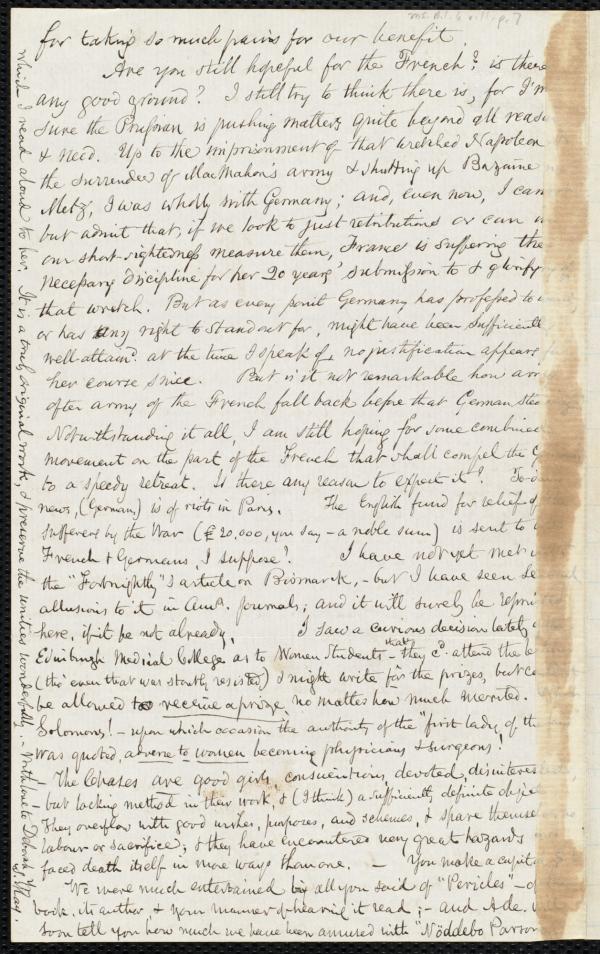 for taking so much pains for our benefit.
Are you still hopeful for the French? is there
any good ground? I still try to think there is, for I'm
sure the Prussian is pushing matters quite beyond all reaso
& need. Up to the imprisonment of that wretched Napoleon
the surrender of MacMahon's army & shutting up Bazaine
Metz, I was wholly with Germany; and, even now, I can
but admit that, if we look to just retributions or can
our short-sightedness measure them, France is suffering the
necessary discipline for her 20 years' submission to & glorify
that wretch. But as every point Germany has professed to
or has any right to stand out for, might have been sufficientl
well attaind. at the time I speak of, no justification appears
her course since. But is it not remarkable how arm
after army of the French fall back before that German
Notwithstanding it all, I am still hoping for some combined
movement on the part of the French that shall compel the G
to a speedy retreat. Is there any reason to expect it? To-d
news, (German) is of riots in Paris. The English fund for relief of
sufferers by the War (£20,000, you say - a noble sum) is sent to
French & Germans, I suppose? I have not yet met
the "Fortnightly"'s article on Bismarck, - but I have seen se
allusions to it in Amn. journals; and it will surely be reprin
here, if it be not already. I saw a curious decision lately
Edinburgh Medical College as to Women Students - that they cd. attend the
(tho' even that was stoutly resisted) & might write for the prizes, but co
be allowed to receive a prize, no matter how much merited.
Solomons! - upon which occasion the authority of the "first lady of the
was quoted, adverse to women becoming physicians & surgeons!
The Chases are good girls, conscientious, devoted, disinteres
but lacking method in their work, & (I think) a sufficiently definite object
They overflow with good wishes, purposes, and schemes, & spare themsel
labour or sacrifice; & they have encountered very great hazards
faced death itself in more ways than one. - You make a capital
We were much entertained by all you said of "Pericles" -
book, its author, & your manner of hearing it read; - and Ade.
soon tell you how much we have been amused with "Nöddebo Parson
which I read aloud to her. It is a truly original work, & preserves the unities wonderfully. - With love to Deborah, Yr.
S. May.